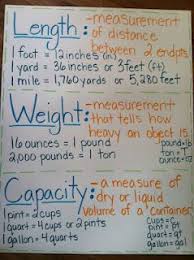 Length: -measurement
of distance
between 2 endpts
1 foot = 12 inches (in)
1 yard = 36 inches or 3 feet (ft)
1 mile = 1,760 yards or 5,280 feet
Weight: -measurement
that tells how
heavy an object is
16 ounces = 1 pound
2,000 pounds = 1 ton
pound = lb
ton = T
ounce = oz.
Capacity: -a measure of
dry or liquid
volume of a container
1 pint = 2 cups
1 quart = 4 cups or 2 pints
1 gallon = 4 quarts
cups = c
pint = pt
quart = qt
gallon = gal